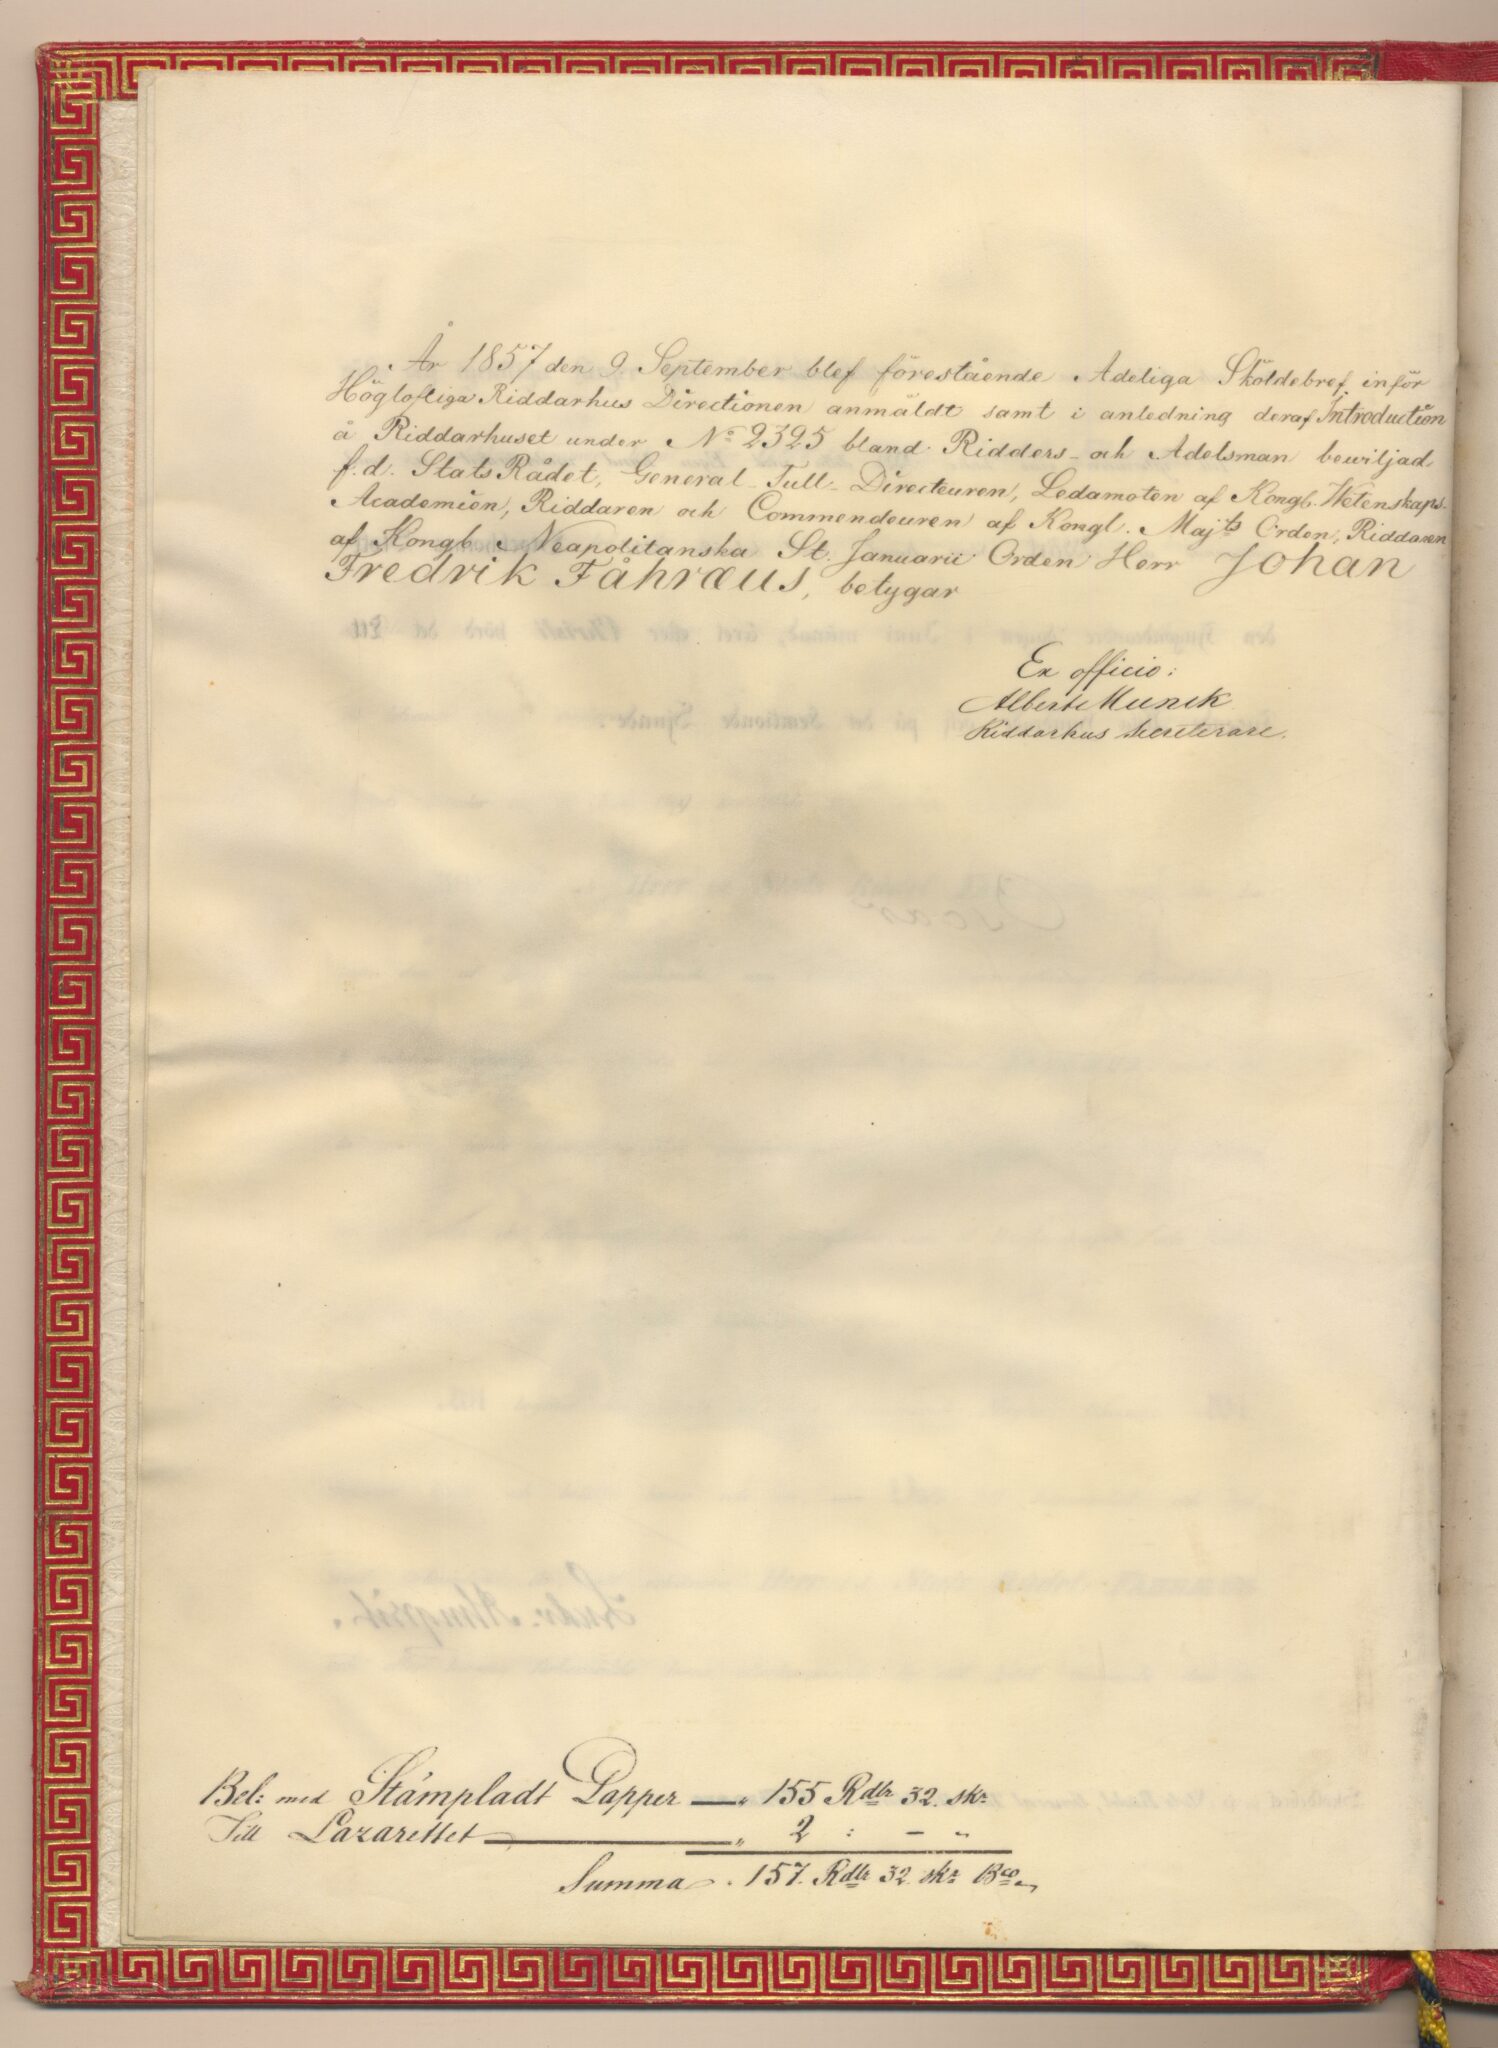 År 1857 den 9 September blef förestående Adeliga Sköldebref inför
Höglofliga Riddarhus Directionen anmäldt samt i anledning deraf Introduction
å Riddarhuset under No 2325 bland Ridders- och Adelsman bewiljad
f.d. StatsRådet, General-Tull-Directeuren, Ledamoten af Kongl. Wetenskaps-
Academien, Riddaren och Commendeuren af Kongl. Majts Orden, Riddaren
af Kongl. Neapolitanska St. Januarii Orden Herr Johan
Fredrik Fåhræus, betygar
Ex officio:
Albert Munck
Riddarhus Secreterare.
Bel: med Stämpladt Papper — „ 155 Rdlr 32. skr
Till Lazarettet — „ 2 : – „
Summa . 157. Rdlr 32. skr Bco